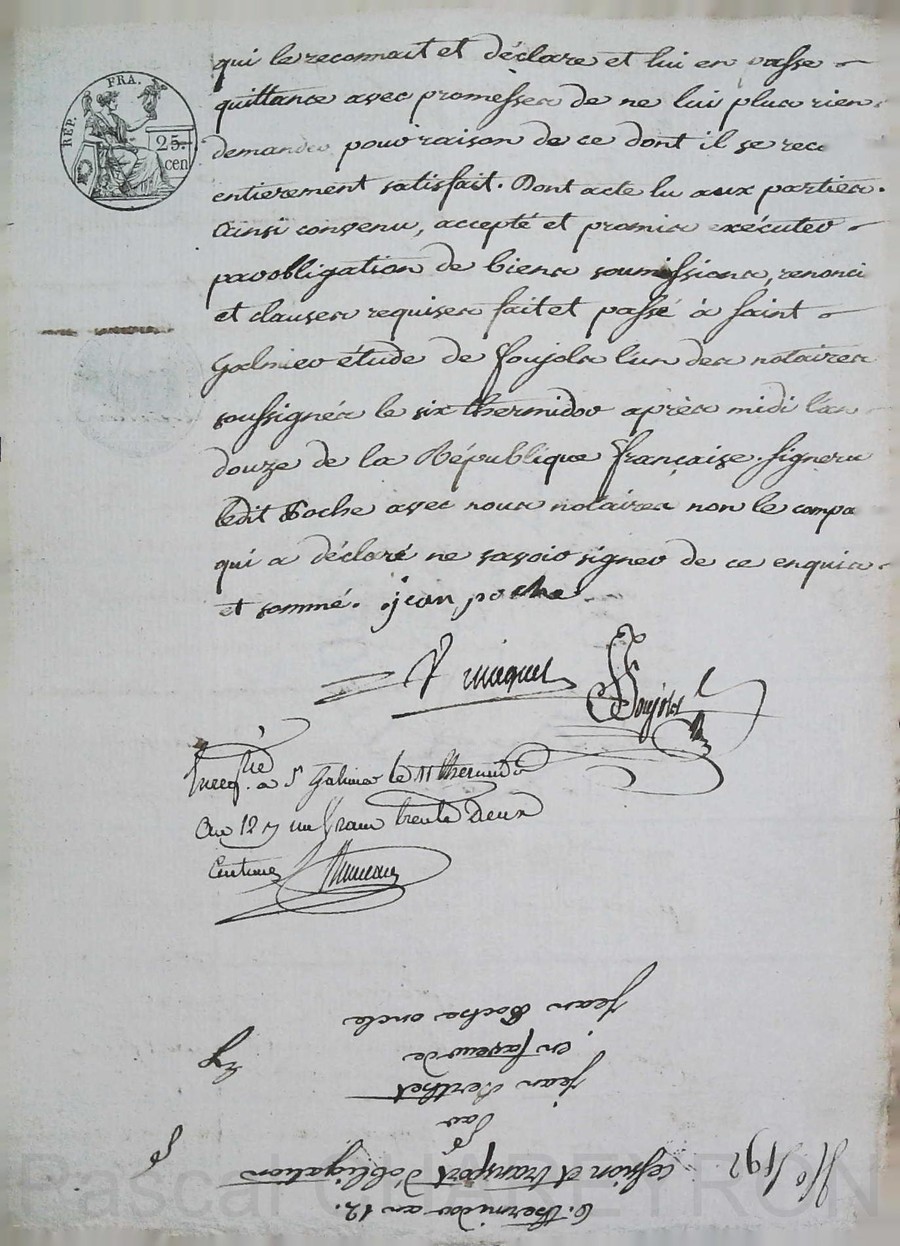 RÉP. FRA.
25.
cen
qui le reconnait et déclare et lui en passe
quittance avec promesses de ne lui plus rien
demander pour raison de ce dont il se
entierement satisfait. Dont acte lu aux parties.
Ainsi convenu, accepté et promis exécuter
par obligation de biens soumissions, renonci
et clauses requises fait et passé à saint
galmier étude de Soujols l'un des notaires
soussignés le six thermidor après midi l'an
douze de la République française. signera
ledit Poche avec nous notaires non le compa
qui a déclaré ne savoir signer de ce enquis
et sommé. jean poche
Soujols
Enreg.ré a St Galmier le 11 thermidor
an 12 un franc trente deux
Centimes
6. thermidor an 12.
N.° 192 cession et transport d'obligation
par
jean Berthet
en faveur de
jean Poche oncle
Pascal CHAREYRON